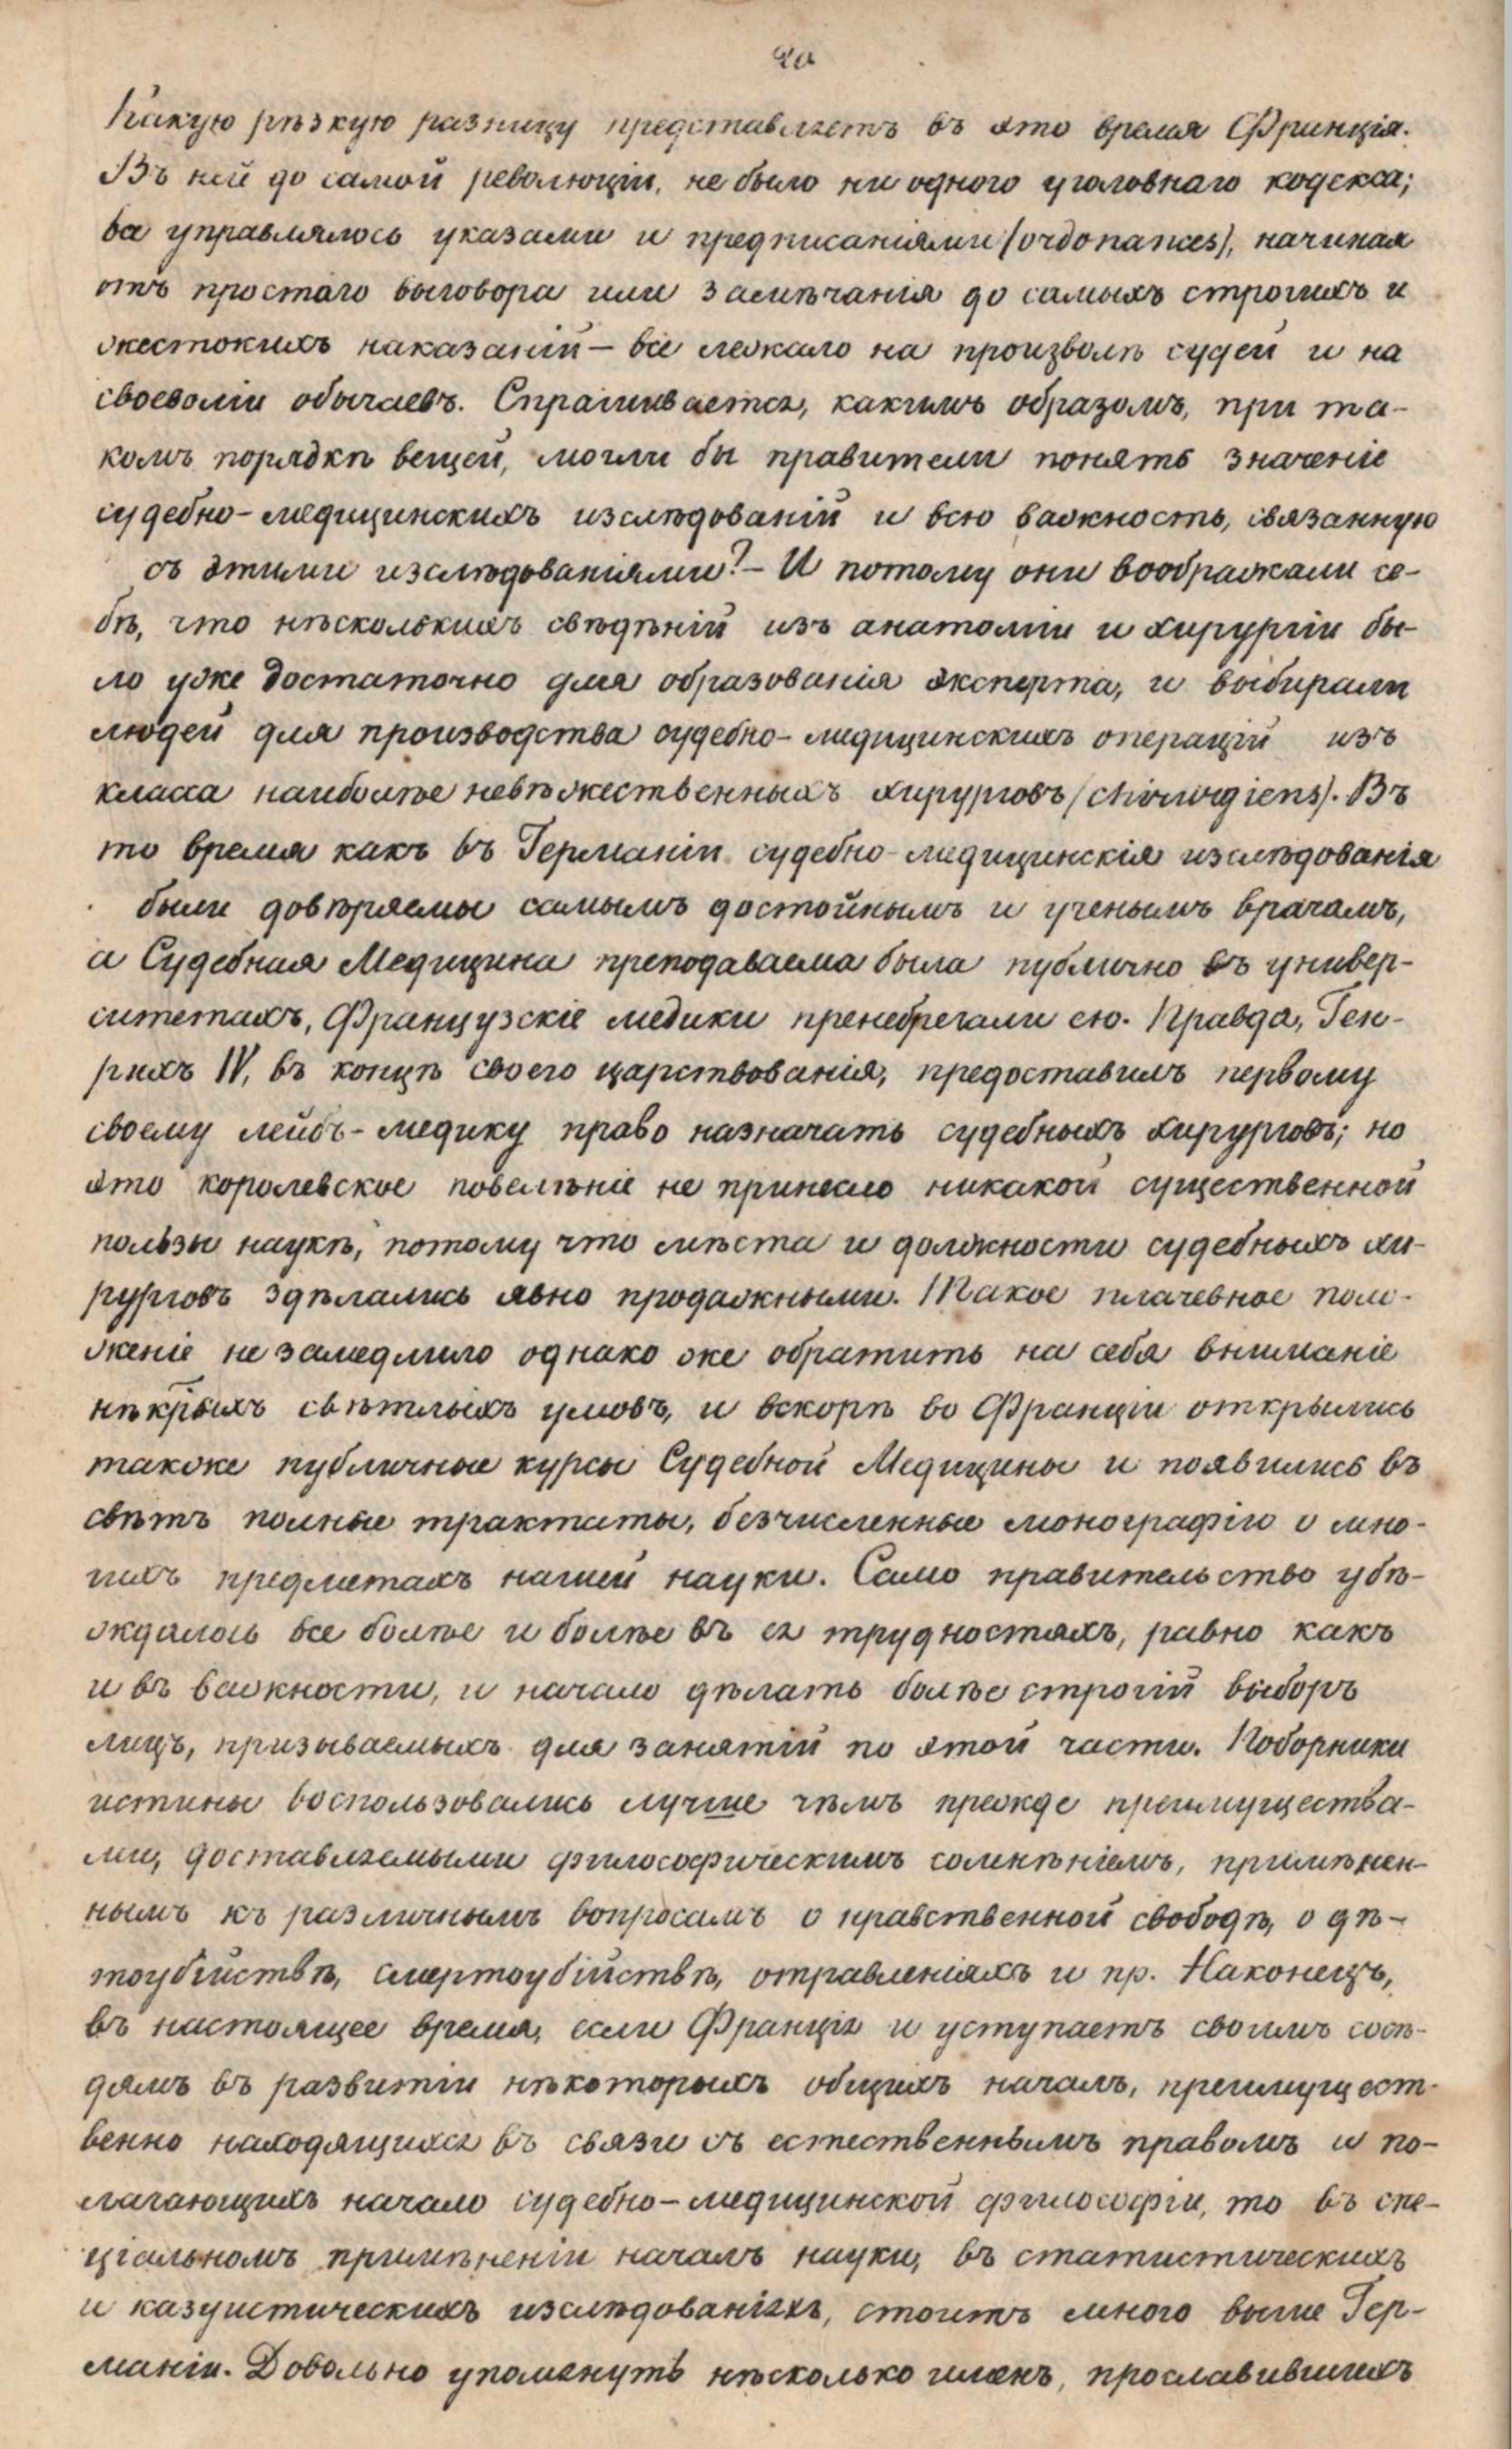 20
Какую рѣзкую разницу представляетъ въ это время Франція.
Въ ней до самой революціи, не было ни одного уголовнаго кодекса;
все управлялось указами и предписаніями (ordonances), начиная
отъ простаго выговора или замѣчанія до самыхъ строгихъ и
жестокихъ наказаній — все лежало на произволѣ судей и на
своеволіи обычаевъ. Спрашивается, какимъ образомъ, при та-
комъ порядкѣ вещей, могли бы правители понять значеніе
судебно-медицинскихъ изслѣдованій и всю важность, связанную
съ этими изслѣдованіями? — И потому они воображали се-
бѣ, что нѣсколькихъ свѣдѣній изъ анатоміи и хирургіи бы-
ло уже достаточно для образованія эксперта, и выбирали
людей для производства судебно-медицинскихъ операцій изъ
класса наиболѣе невѣжественныхъ хирурговъ (chirurgiens). Въ
то время какъ въ Германіи судебно-медицинскія изслѣдованія
были довѣряемы самымъ достойнымъ и ученымъ врачамъ,
а Судебная Медицина преподаваема была публично въ универ-
ситетахъ, Французскіе медики пренебрегали ею. Правда, Ген-
рихъ IV, въ концѣ своего царствованія, предоставилъ первому
своему лейбъ-медику право назначать судебныхъ хирурговъ; но
это королевское повелѣніе не принесло никакой существенной
пользы наукѣ, потому что мѣста и должности судебныхъ хи-
рурговъ здѣлались явно продажными. Такое плачевное поло-
женіе не замедлило однако же обратить на себя вниманіе
нѣкрыхъ свѣтлыхъ умовъ, и вскорѣ во Франціи открылись
также публичные курсы Судебной Медицины и появились въ
свѣтъ полные трактаты, безчисленные монографіи о мно-
гихъ предметахъ нашей науки. Само правительство убѣ-
ждалось все болѣе и болѣе въ ея трудностяхъ, равно какъ
и въ важности, и начало дѣлать болѣе строгій выборъ
лицъ, призываемыхъ для занятій по этой части. Поборники
истины воспользовались лучше чѣмъ прежде преимущества-
ми, доставляемыми философическимъ сомнѣніемъ, примѣнен-
нымъ къ различнымъ вопросамъ о нравственной свободѣ, о дѣ-
тоубійствѣ, смертоубійствѣ, отравленіяхъ и пр. Наконецъ,
въ настоящее время, если Франція и уступаетъ своимъ сосѣ-
дямъ въ развитіи нѣкоторыхъ общихъ началъ, преимущест-
венно находящихся въ связи съ естественнымъ правомъ и по-
лагающихъ начало судебно-медицинской философіи, то въ спе-
ціальномъ примѣненіи началъ науки, въ статистическихъ
и казуистическихъ изслѣдованіяхъ, стоитъ много выше Гер-
маніи. Довольно упомянуть нѣсколько именъ, прославившихъ